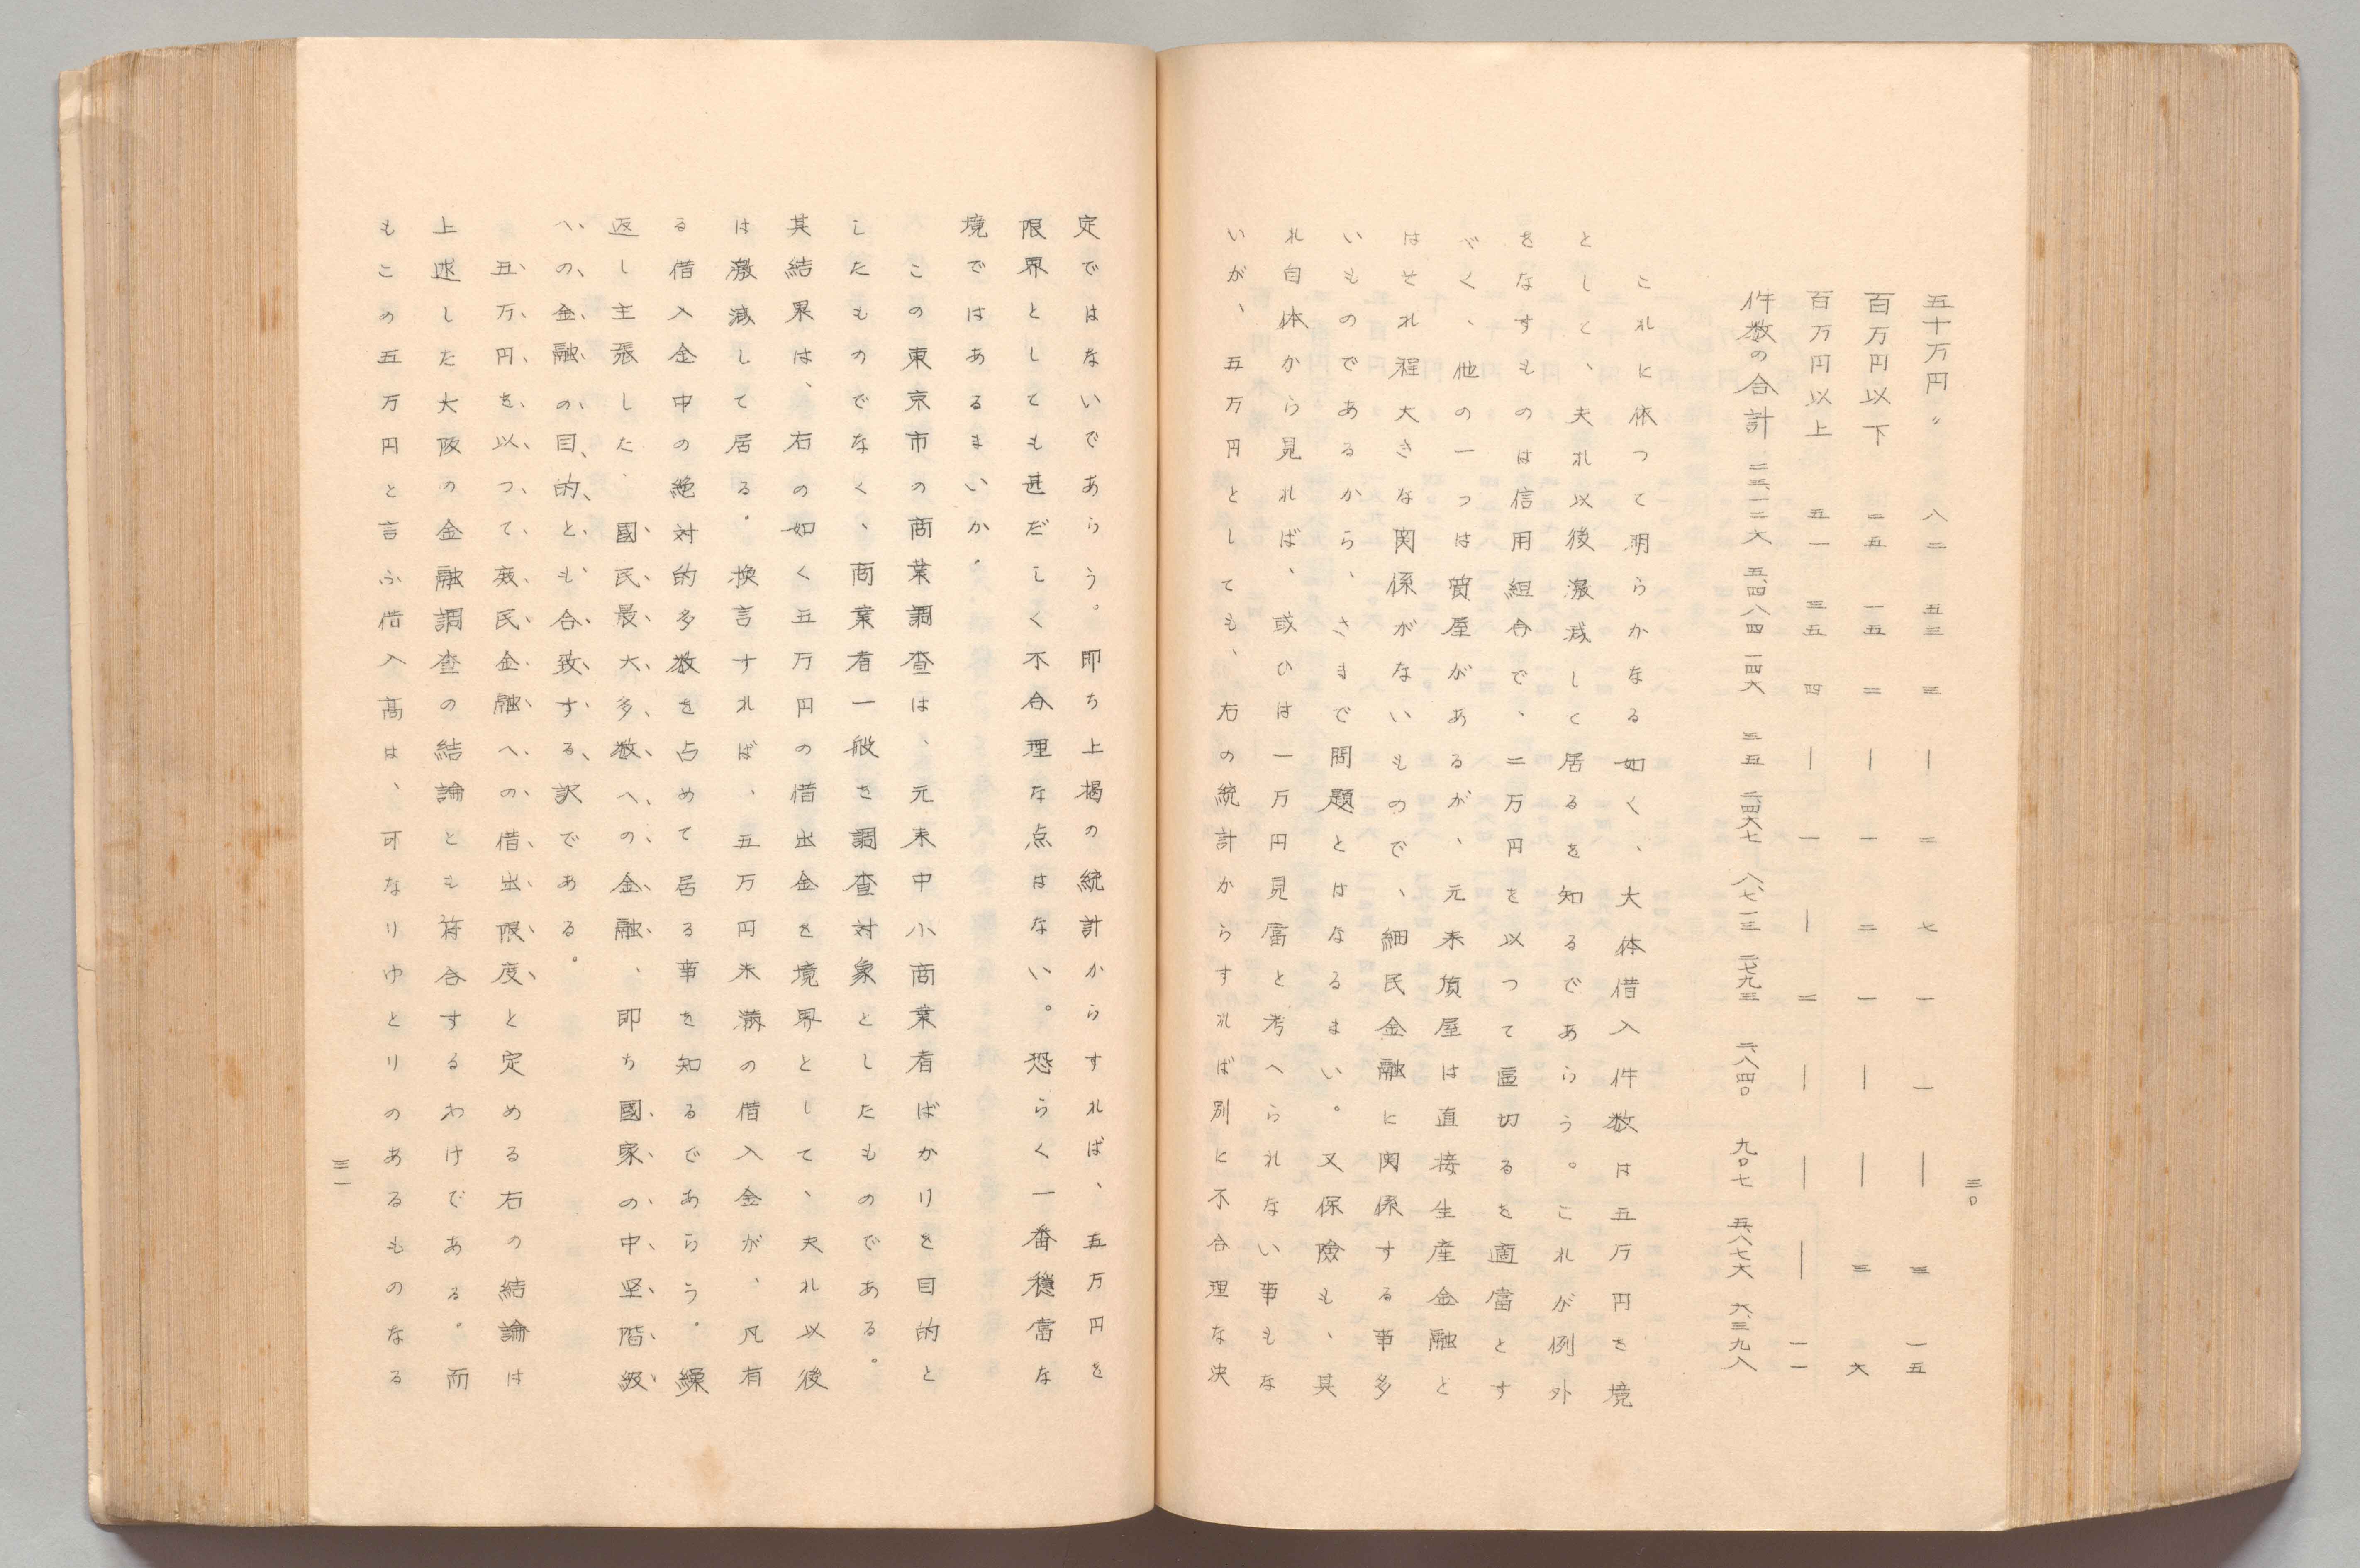 三〇
五十万円〃 八二 五三 三 ― 二 七 一 一 ― 三 一五
百万円以下 二五 一五 二 ― 一 二 一 ― ― 三 六
百万円以上 五一 三五 四 ― 一 ― 二 ― ― ― 一一
件数の合計 二三、一二六 五、四八四 一四六 三五 二、四六七 八、七一三 二、七九三 二、八四〇 九〇七 五、八七六 六、三九八
これに依つて明らかなる如く、大体借入件数は五万円を境
としと、夫れ以後激減しく居るを知るであらう。これが例外
をなすものは信用組合で、二万円を以つて區切るを適當とす
べく、他の一つは質屋があるが、元来質屋は直接生産金融と
はそれ程大きな関係がないもので、細民金融に関係する事多
いものであるから、さまで問題とはなるまい。又保險も、其
れ自体から見れば、或ひは一万円見當と考へられない事もな
いが、五万円としても、右の統計からすれば別に不合理な決
定ではないであらう。即ち上掲の統計からすれば、五万円を
限界としても甚だしく不合理な点はない。恐らく一番穏當な
境ではあるまいか。
この東京市の商業調査は、元来中小商業者ばかりを目的と
したものでなく、商業者一般を調査対象としたものである。
其結果は、右の如く五万円の借出金を境界として、夫れ以後
は激減して居る。換言すれば、五万円未満の借入金が、凡有
る借入金中の絶対的多数を占めて居る事を知るであらう。繰
返し主張した、國民最大多数への金融、即ち國家の中堅階級
への金融の目的とも合致する訳である。
五万円を以つて庶民金融への借出限度と定める右の結論は
上述した大阪の金融調査の結論とも符合するわけである。而
もこの五万円と言ふ借入高は、可なりゆとりのあるものなる
三一